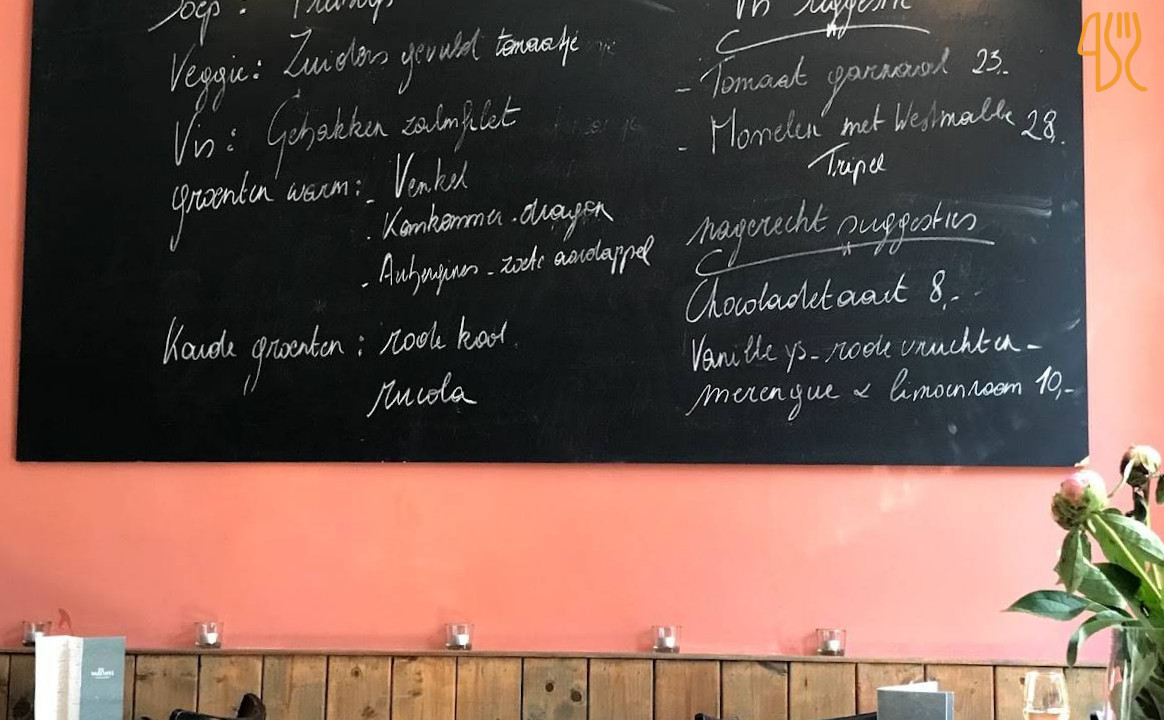 Soep :
Veggie: Zuiders gevuld tomaatje
Vis : Gebakken zalmfilet
groenten warm: - Venkel
- Komkommer - dragon
- Aubergines - zoete aardappel
Koude groenten : rode kool
rucola
Vis suggestie
- Tomaat garnaal 23,-
- Mosselen met Westmalle 28,-
Tripel
nagerecht suggesties
Chocoladetaart 8,-
Vanille ijs - rode vruchten -
merengue & limoenroom 10,-